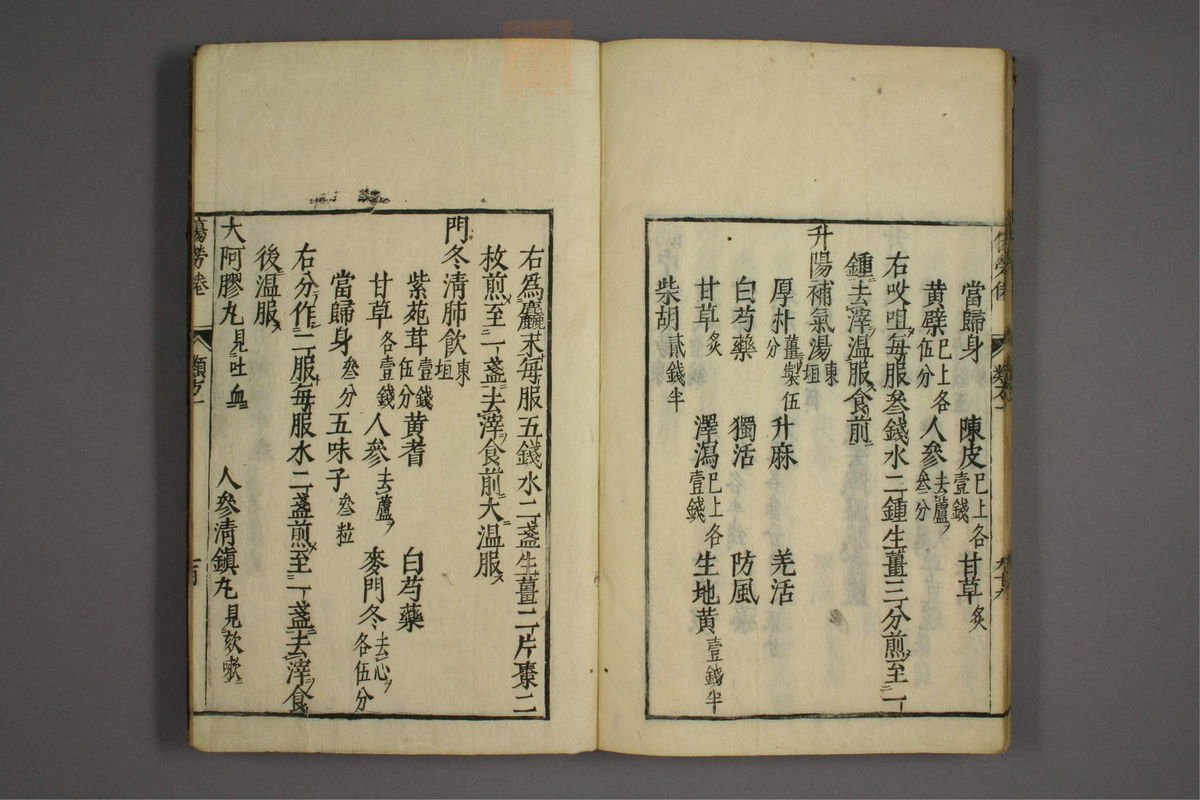 當歸身 陳皮已上各壹錢 甘草炙
黄檗已上各伍分 人參去蘆叁分
右㕮咀每服叁錢水二鍾生薑三分煎至一
鍾去滓温服食前
升陽補氣湯東垣
厚朴薑製伍分 升麻 羌活
白芍藥 獨活 防風
甘草炙 澤瀉已上各壹錢 生地黄壹錢半
柴胡貳錢半
右爲麤末毎服五錢水二盞生薑二片棗二
枚煎至一盞去滓食前大温服
門冬清肺飲東垣
紫苑茸壹錢伍分 黄耆 白芍藥
甘草各壹錢 人參去蘆 麥門冬去心各伍分
當歸身叁分 五味子叁粒
右分作二服毎服水二盞煎至一盞去滓食
後温服
大阿膠丸見吐血 人參清鎮丸見欬嗽
類方一